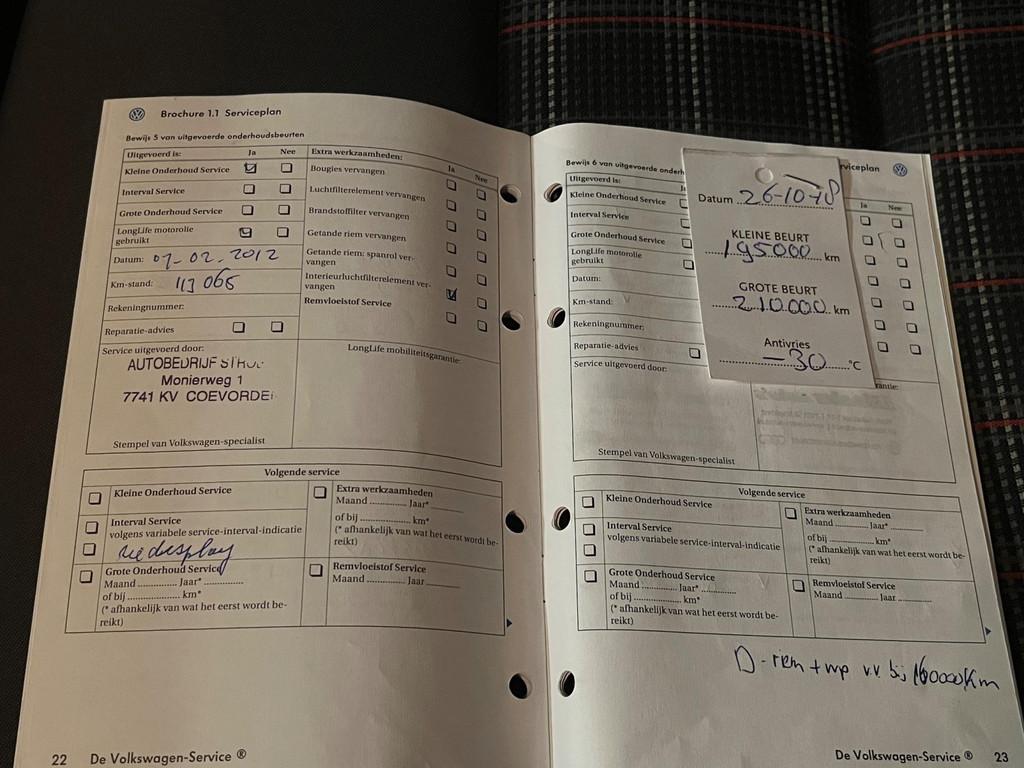 Brochure 1.1 Serviceplan
Bewijs 5 van uitgevoerde onderhoudsbeurten
Uitgevoerd is: Ja Nee
Kleine Onderhoud Service
Interval Service
Grote Onderhoud Service
LongLife motorolie
gebruikt
Datum: 07-02-2012
Km-stand: 113 066
Rekeningnummer:
Reparatie-advies
Extra werkzaamheden: Ja Nee
Bougies vervangen
Luchtfilterelement vervangen
Brandstoffilter vervangen
Getande riem vervangen
Getande riem: spanrol ver-
vangen
Interieurluchtfilterelement ver-
vangen
Remvloeistof Service
Service uitgevoerd door:
AUTOBEDRIJF
Monierweg 1
7741 KV COEVORDE
Stempel van Volkswagen-specialist
LongLife mobiliteitsgarantie:
Volgende service
Kleine Onderhoud Service
Interval Service
volgens variabele service-interval-indicatie
zie display
Grote Onderhoud Service
Maand ............ Jaar* ............
of bij ............ km*
(* afhankelijk van wat het eerst wordt be-
reikt)
Extra werkzaamheden
Maand ............ Jaar* ............
of bij ............ km*
(* afhankelijk van wat het eerst wordt be-
reikt)
Remvloeistof Service
Maand ............ Jaar ............
22 De Volkswagen-Service ®
Bewijs 6 van uitgevoerde onderh
rviceplan
Uitgevoerd is: J
Kleine Onderhoud Service
Interval Service
Grote Onderhoud Service
LongLife motorolie
gebruikt
Datum:
Km-stand:
Rekeningnummer:
Reparatie-advies
Ja Nee
Datum 26-10-18
KLEINE BEURT
195.000 km
GROTE BEURT
210.000 km
Antivries
-30 °C
Service uitgevoerd door:
rantie:
Stempel van Volkswagen-specialist
Volgende service
Kleine Onderhoud Service
Interval Service
volgens variabele service-interval-indicatie
Grote Onderhoud Service
Maand ............ Jaar* ............
of bij ............ km*
(* afhankelijk van wat het eerst wordt be-
reikt)
Extra werkzaamheden
Maand ............ Jaar* ............
of bij ............ km*
(* afhankelijk van wat het eerst wordt be-
reikt)
Remvloeistof Service
Maand ............ Jaar ............
D-riem + wp v.v. bij 160000 Km
De Volkswagen-Service ® 23